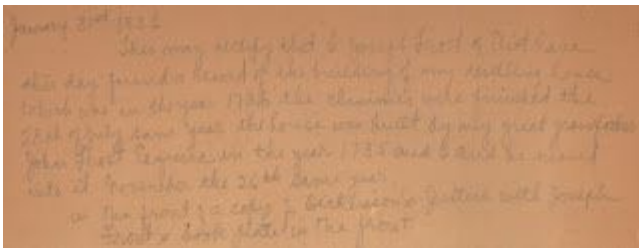 January 31st
This may certify that I Joseph Frost of Eliot have
this day found a record of the building of my dwelling house
which was in the year 1735 the chimneys were finished the
of July same year the house was built by my great grandfather
John Frost in the year 1735 and he moved
into it November the 26th same year
in the front of a copy of Dickinson's Justice with Joseph
Frost's book plate in the front